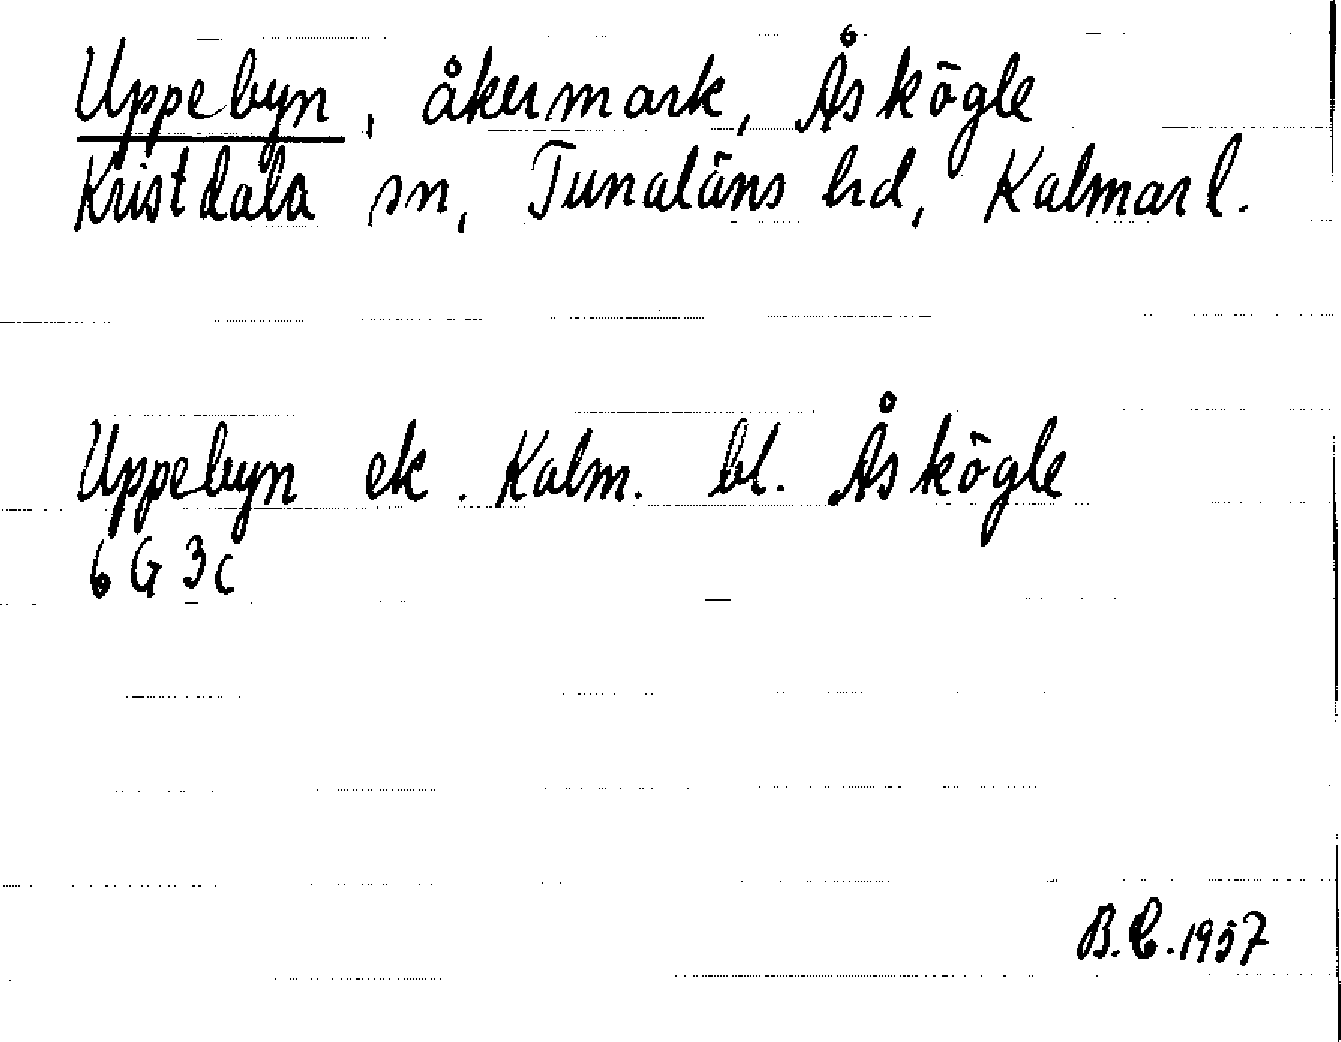 Uppebyn, åkermark, Åskögle
Kristdala sn, Tunaläns hd, Kalmar l.
Uppebyn ek. Kalm. bl. Åskögle
6 G 3c
B.C. 1957